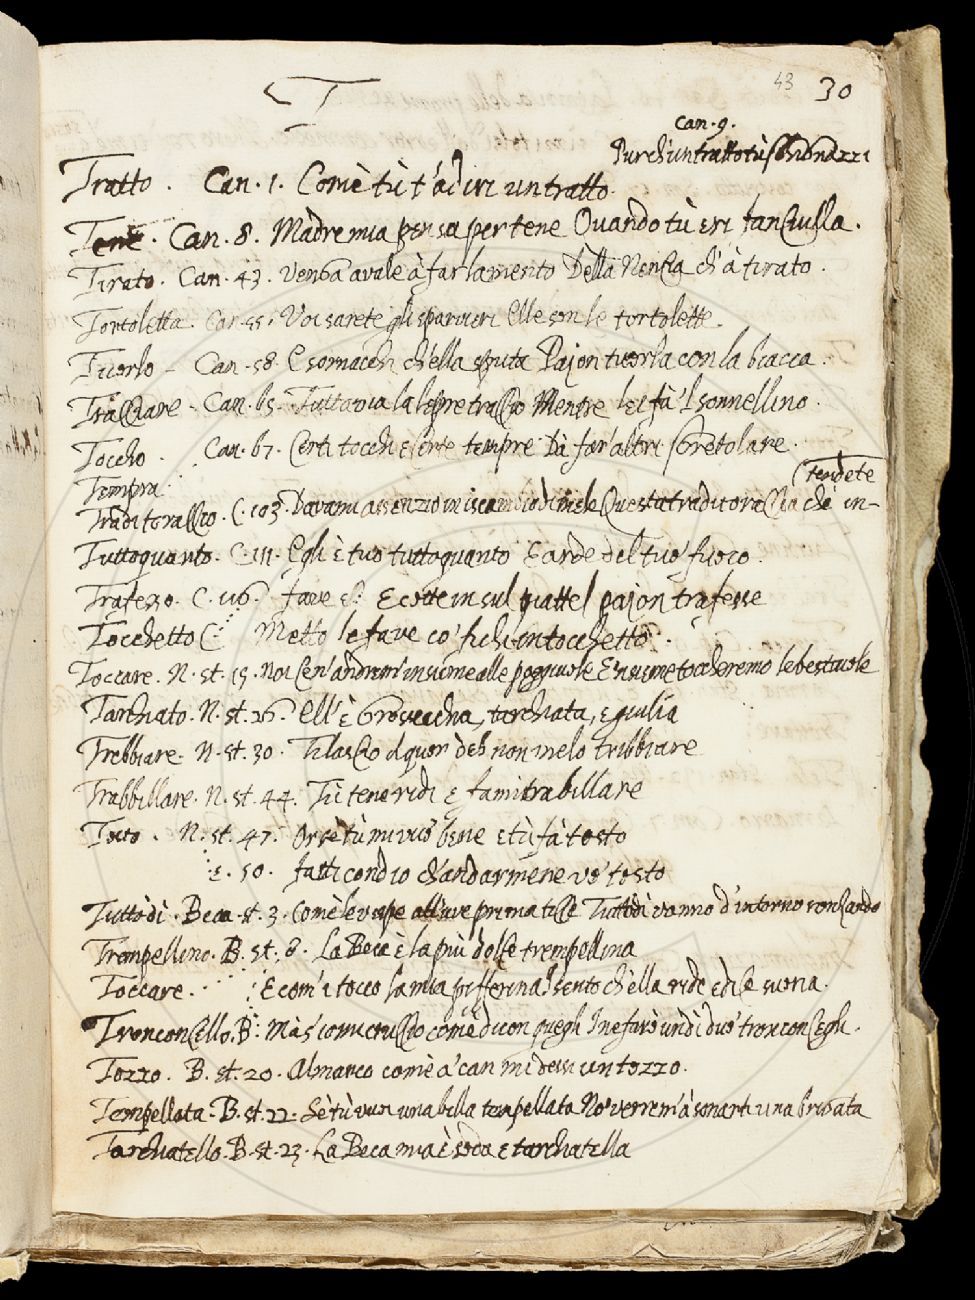 T
43 30
Can. 9.
Purch'un tratto tù
Tratto. Can. 1. Comè tù t'adiri un tratto.
Tene. Can. 8. Madre mia pensa per tene Quando tù eri fanciulla.
Tirato. Can. 43. Venga avale à far lamento Della Nencia ch'à tirato.
Tortoletta. Can. 55. Voi sarete gli sparvieri Elle son le tortolette.
Tuorlo - Can. 58. E sornacchi ch'ella sputa Pajon tuorla con la biacca.
Tracciare. Can. 65. Tuttavia la lepre traccio Mentre lei fà 'l sonnellino.
Toccho. Can. 67. Certi tocchi e certe tempre Dà far altri sgretolare.
Tempra.
(tendete
Traditoraccio. C. 103. Davami assenzio in iscambio di miele Questa traditoraccia che in-
Tuttoquanto. C. 111. Egli è tuo tuttoquanto E arde del tuo fuoco.
Trafesso. C. 116. Fave E cotte in sul piattel pajon trafesse
Tocchetto C. Metto le fave co' fichi in tocchetto.
Toccare. N. st. 15. Noi cen'andrem' insieme alle E insieme toccheremo le bestiuole
Tarchiato. N. st. 26. Ell'è grossa, tarchiata, e giulia
Trebbiare. N. st. 30. Ti lascio il quor deh non me lo tribbiare
Trabbillare. N. st. 44. Tù te ne ridi e fa mi trabillare
Tosto. N. st. 47. Or se tù mi vuo' bene e tù fà tosto
E. 50. Fatti con dio ch'andarmene vo' tosto
Tutto dì. Beca. st. 3. Come le vespe all'uve primaticce Tutto dì vanno d'intorno ronzando
Trempellino. B. st. 8. La Beca è la più dolce trempellina
Toccare. E com'i tocco la mia pifferina I sento ch'ella ride ed ise suona.
Tronconcello. B. Mà s'io mi cruccio come dicon quegli I ne farò un dì duo tronconcegli.
Tozzo. B. st. 20. Almanco come a' can mi dessi un tozzo.
Tempellata. B. st. 22. Sè tù vuoi una bella tempellata No' verrem' à sonarti una brigata
Tarchiatello. B. st. 23. La Beca mia è soda e tarchiatella